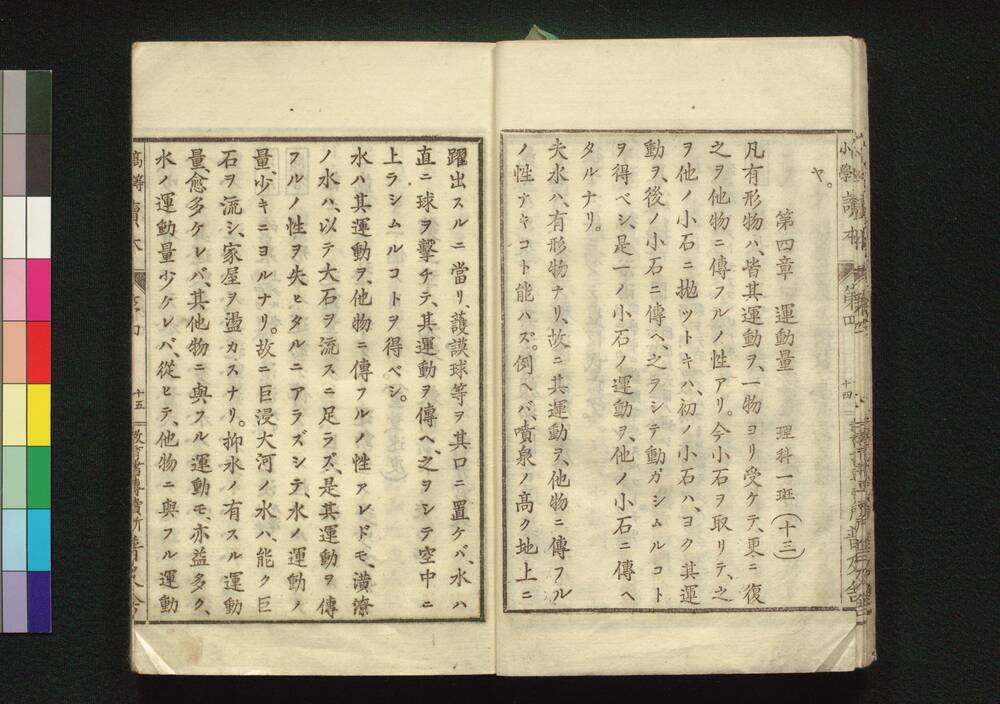 ヤ。
第四章 運動量 理科一班(十三)
凡有形物ハ、皆其運動ヲ、一物ヨリ受ケテ、更ニ復
之ヲ他物ニ傳フルノ性アリ。今小石ヲ取リテ、之
ヲ他ノ小石ニ抛ツトキハ、初ノ小石ハ、ヨク其運
動ヲ、後ノ小石ニ傳ヘ、之ヲシテ動カシムルコト
ヲ得ベシ、是一ノ小石ノ運動ヲ、他ノ小石ニ傳ヘ
タルナリ。
夫水ハ、有形物ナリ、故ニ其運動ヲ、他物ニ傳フル
ノ性ナキコト能ハズ。例ヘバ、噴泉ノ高ク地上ニ
躍出スルニ當リ、護謨球等ヲ其口ニ置ケバ、水ハ
直ニ球ヲ擊チテ、其運動ヲ傳ヘ、之ヲシテ空中ニ
上ラシムルコトヲ得ベシ。
水ハ其運動ヲ、他物ニ傳フルノ性アレドモ、潢潦
ノ水ハ、以テ大石ヲ流スニ足ラズ、是其運動ヲ傳
フルノ性ヲ失ヒタルニアラズシテ、水ノ運動ノ
量、少キニヨルナリ。故ニ巨浸大河ノ水ハ、能ク巨
石ヲ流シ、家屋ヲ盪カスナリ。抑水ノ有スル運動
量、愈多ケレバ、其他物ニ與フル運動モ、亦益多ク、
水ノ運動量少ケレバ、從ヒテ、他物ニ與フル運動
小學讀本
第四
十四
高等
讀本
十五